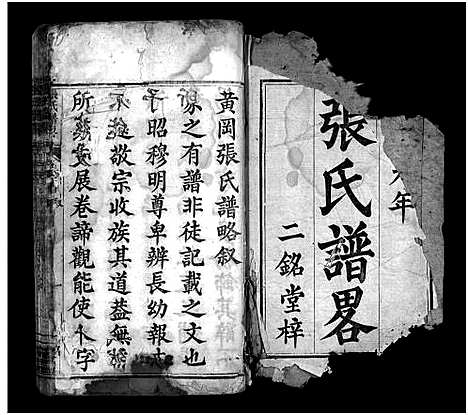 年
張氏譜畧
二銘堂梓
黃岡張氏譜略叙
家之有譜非徒記載之文也
昭穆明尊卑辨長幼報
敬宗收族其道葢無
所展卷諦觀能使人字